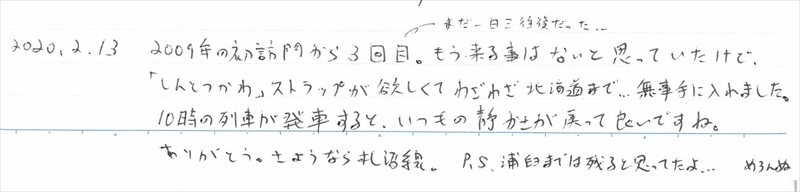 まだ一日三往復だった…
2020.2.13 2009年の初訪問から3回目。もう来る事はないと思っていたけど、
「しんとつかわ」ストラップが欲しくてわざわざ北海道まで…無事手に入れました。
10時の列車が発車すると、いつもの静かさが戻って良いですね。
ありがとう。さようなら札沼線。 P.S. 浦臼までは残ると思ってたよ… めろんぬ